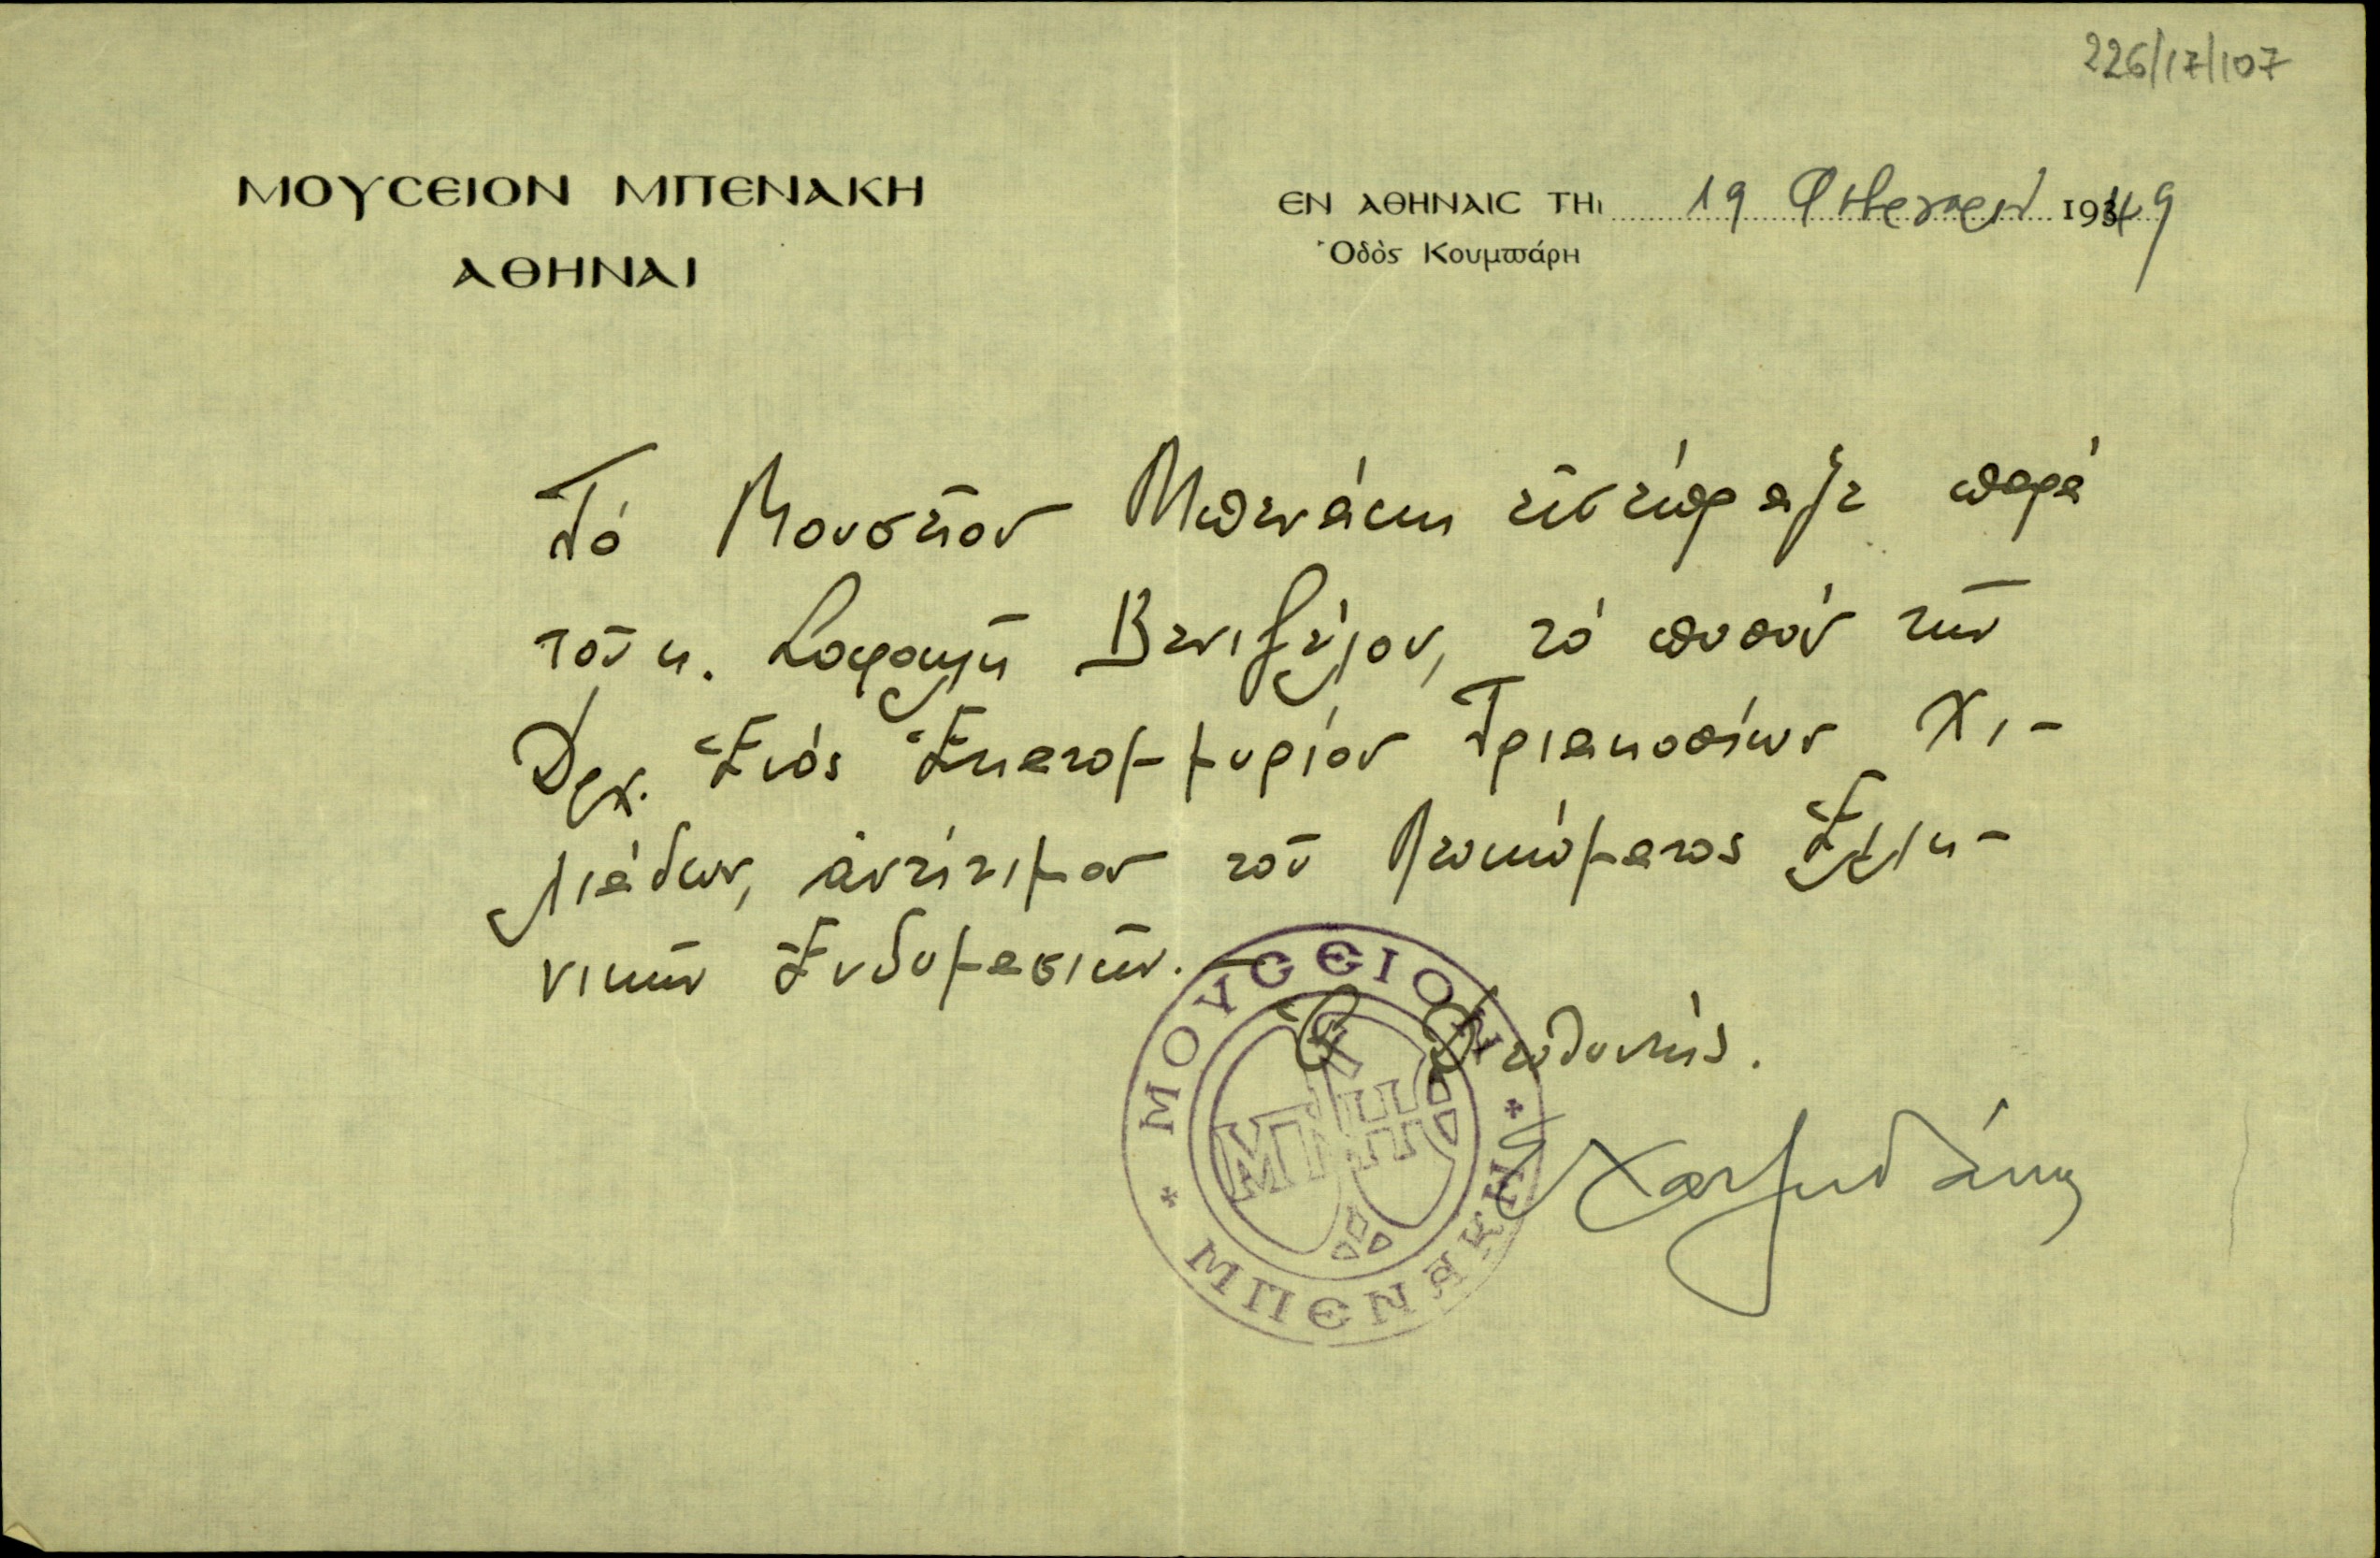 226/17/107
ΜΟΥСΕΙΟΝ ΜΠΕΝΑΚΗ
ΑΘΗΝΑΙ
ΕΝ ΑΘΗΝΑΙС ΤΗι 19 Φεβρουαρίου 1949
Ὁδὸς Κουμπάρη
Τό Μουσεῖον Μπενάκη εἰσέπραξε παρά
τοῦ κ. Σοφοκλῆ Βενιζέλου, τό ποσόν τῶν
Δρχ. Ἑνός Ἑκατομμυρίου Τριακοσίων Χι-
λιάδων, ἀντίτιμον τοῦ Λευκώματος Ἑλλη-
νικῶν Ἐνδυμασιῶν.—
Ὁ Διευθυντής.
Χατζηδάκης
ΜΟΥСΕΙΟΝ
ΜΠΕΝΑΚΗ
ΜΠΗ